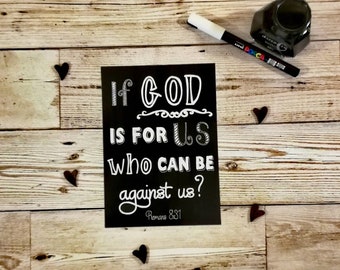 If GOD
IS FOR US
WHO CAN BE
against us?
Romans 8:31